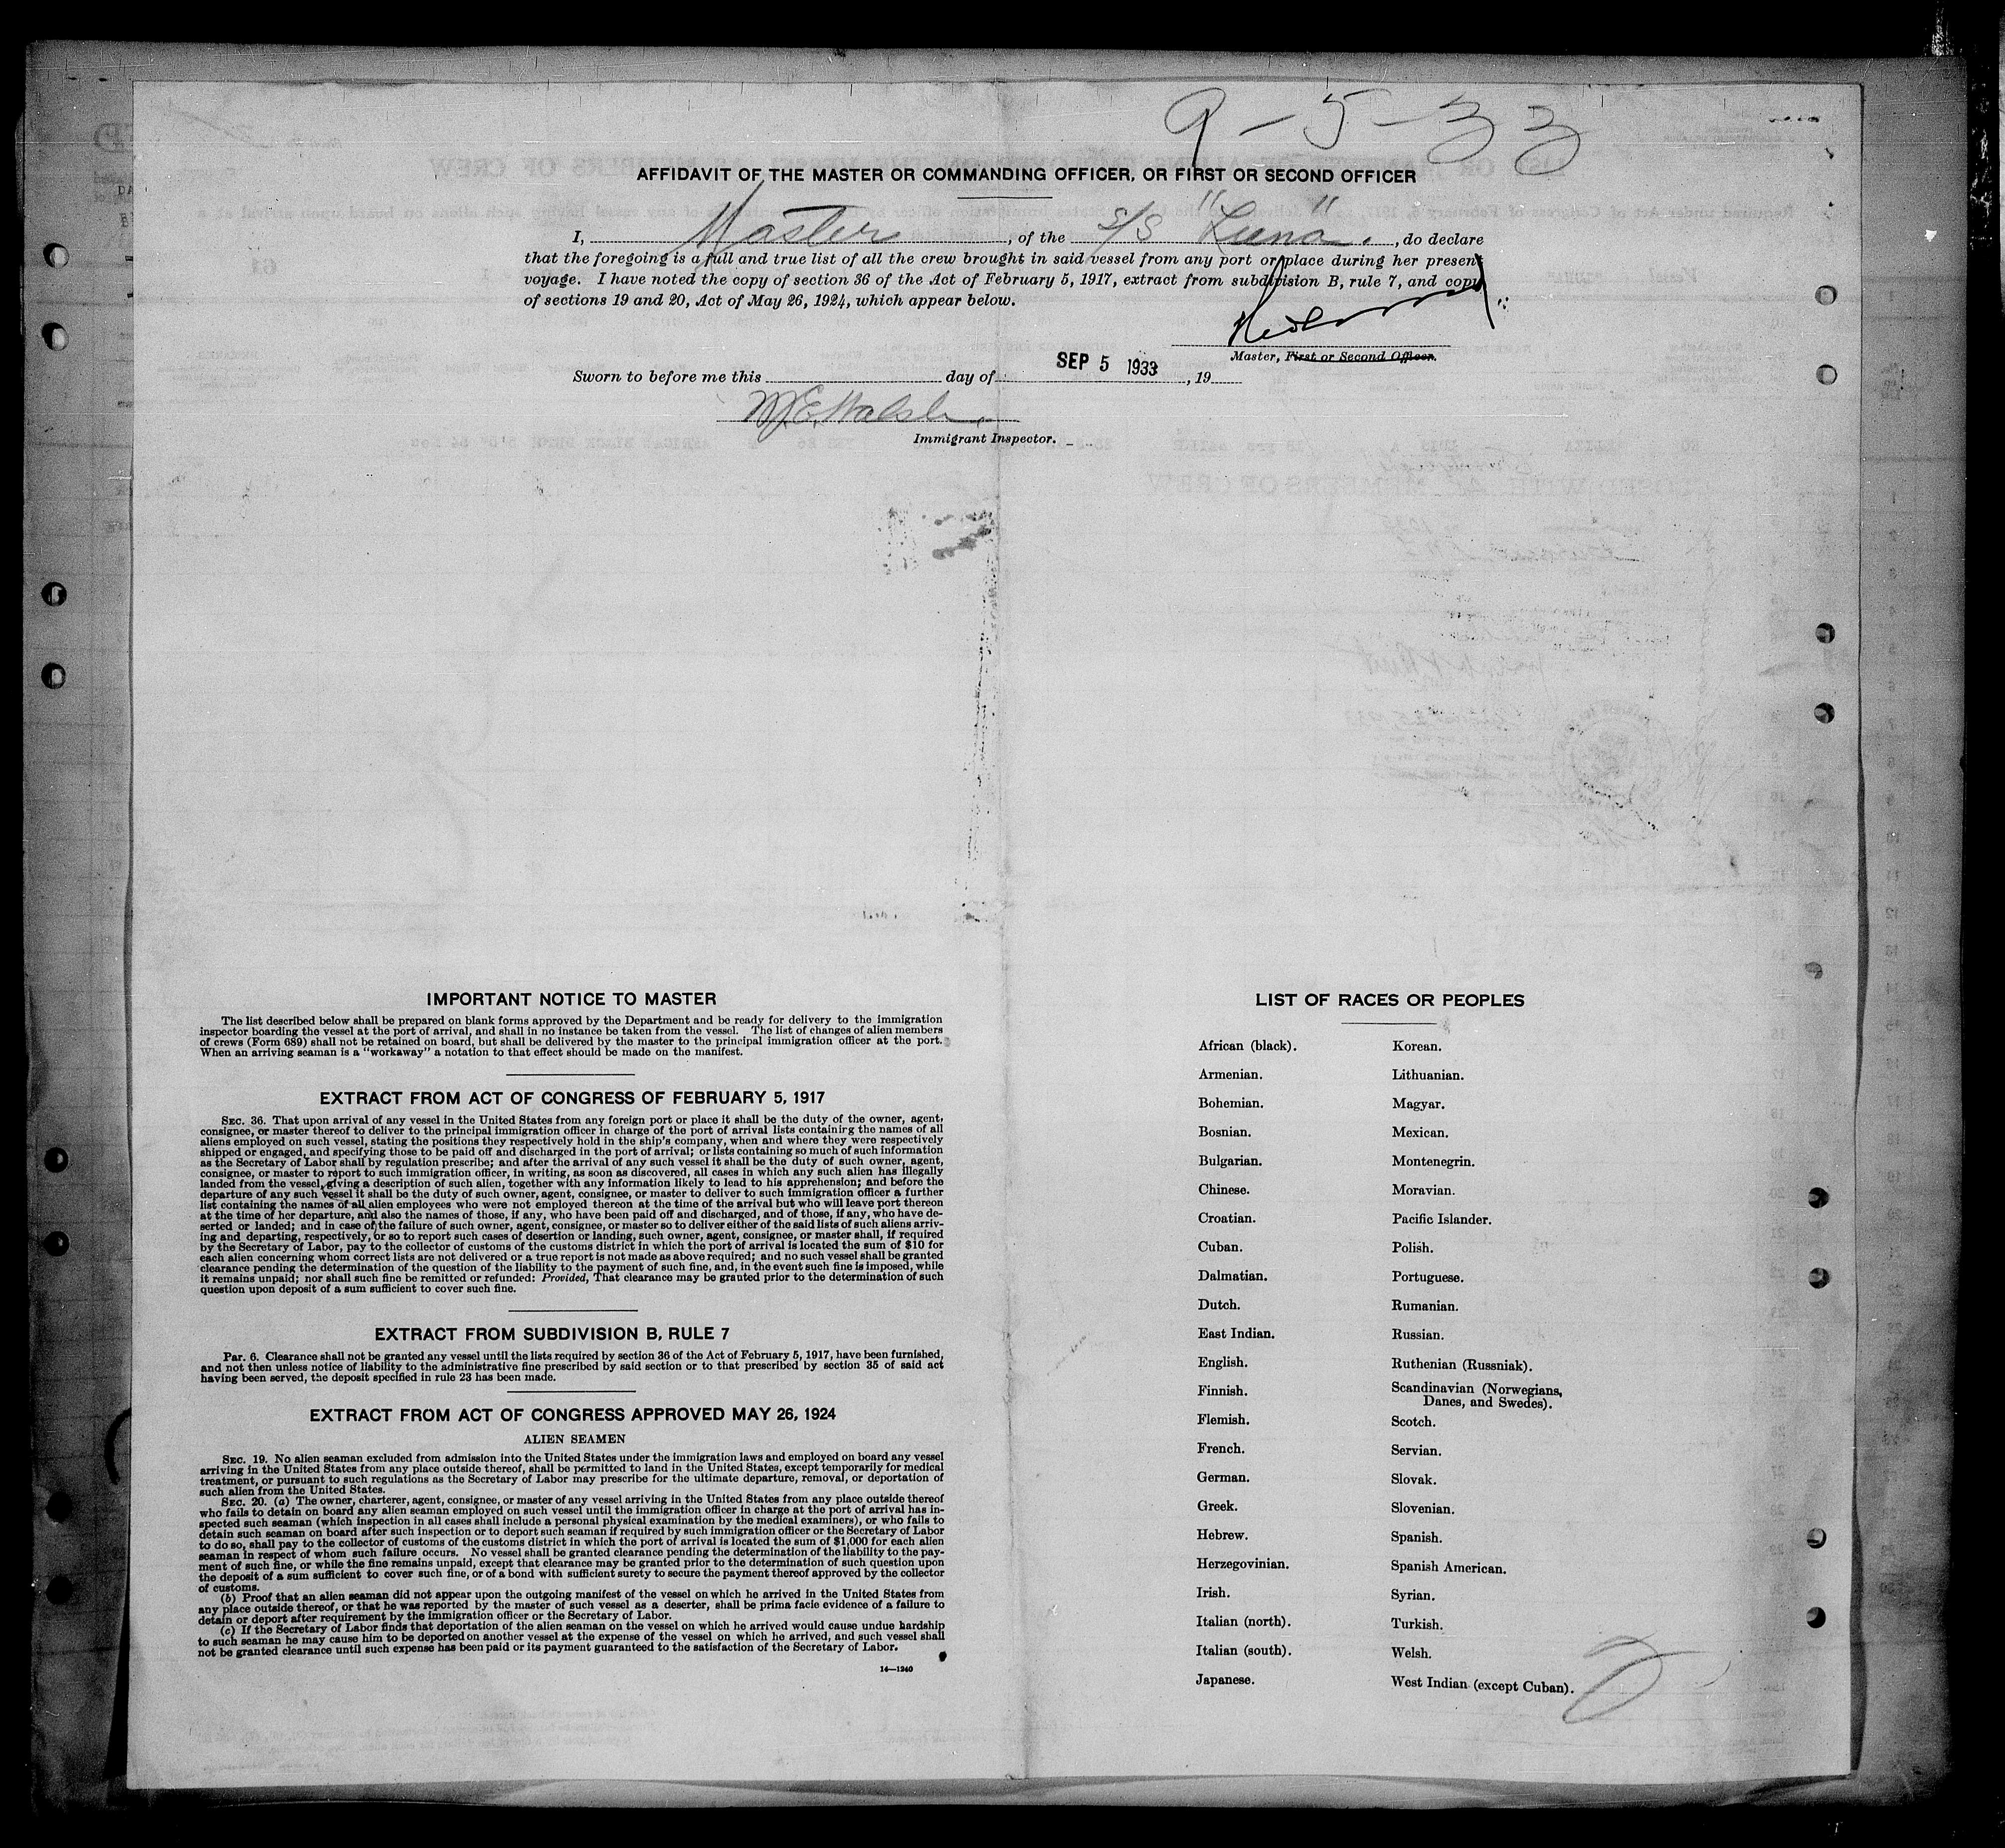 9-5-33
AFFIDAVIT OF THE MASTER OR COMMANDING OFFICER, OR FIRST OR SECOND OFFICER
I, Master, of the S/S "Luna", do declare
that the foregoing is a full and true list of all the crew brought in said vessel from any port or place during her present
voyage. I have noted the copy of section 36 of the Act of February 5, 1917, extract from subdivision B, rule 7, and copy
of sections 19 and 20, Act of May 26, 1924, which appear below.
Master, First or Second Officer.
Sworn to before me this day of SEP 5 1933, 19
M.E. Walsh
Immigrant Inspector.
IMPORTANT NOTICE TO MASTER
The list described below shall be prepared on blank forms approved by the Department and be ready for delivery to the immigration
inspector boarding the vessel at the port of arrival, and shall in no instance be taken from the vessel. The list of changes of alien members
of crews (Form 689) shall not be retained on board, but shall be delivered by the master to the principal immigration officer at the port.
When an arriving seaman is a "workaway" a notation to that effect should be made on the manifest.
EXTRACT FROM ACT OF CONGRESS OF FEBRUARY 5, 1917
SEC. 36. That upon arrival of any vessel in the United States from any foreign port or place it shall be the duty of the owner, agent,
consignee, or master thereof to deliver to the principal immigration officer in charge of the port of arrival lists containing the names of all
aliens employed on such vessel, stating the positions they respectively hold in the ship's company, when and where they were respectively
shipped or engaged, and specifying those to be paid off and discharged in the port of arrival; or lists containing so much of such information
as the Secretary of Labor shall by regulation prescribe; and after the arrival of any such vessel it shall be the duty of such owner, agent,
consignee, or master to report to such immigration officer, in writing, as soon as discovered, all cases in which any such alien has illegally
landed from the vessel, giving a description of such alien, together with any information likely to lead to his apprehension; and before the
departure of any such vessel it shall be the duty of such owner, agent, consignee, or master to deliver to such immigration officer a further
list containing the names of all alien employees who were not employed thereon at the time of the arrival but who will leave port thereon
at the time of her departure, and also the names of those, if any, who have been paid off and discharged, and of those, if any, who have de-
serted or landed; and in case of the failure of such owner, agent, consignee, or master so to deliver either of the said lists of such aliens arriv-
ing and departing, respectively, or so to report such cases of desertion or landing, such owner, agent, consignee, or master shall, if required
by the Secretary of Labor, pay to the collector of customs of the customs district in which the port of arrival is located the sum of $10 for
each alien concerning whom correct lists are not delivered or a true report is not made as above required; and no such vessel shall be granted
clearance pending the determination of the question of the liability to the payment of such fine, and, in the event such fine is imposed, while
it remains unpaid; nor shall such fine be remitted or refunded: Provided, That clearance may be granted prior to the determination of such
question upon deposit of a sum sufficient to cover such fine.
EXTRACT FROM SUBDIVISION B, RULE 7
Par. 6. Clearance shall not be granted any vessel until the lists required by section 36 of the Act of February 5, 1917, have been furnished,
and not then unless notice of liability to the administrative fine prescribed by said section or to that prescribed by section 35 of said act
having been served, the deposit specified in rule 23 has been made.
EXTRACT FROM ACT OF CONGRESS APPROVED MAY 26, 1924
ALIEN SEAMEN
SEC. 19. No alien seaman excluded from admission into the United States under the immigration laws and employed on board any vessel
arriving in the United States from any place outside thereof, shall be permitted to land in the United States, except temporarily for medical
treatment, or pursuant to such regulations as the Secretary of Labor may prescribe for the ultimate departure, removal, or deportation of
such alien from the United States.
SEC. 20. (a) The owner, charterer, agent, consignee, or master of any vessel arriving in the United States from any place outside thereof
who fails to detain on board any alien seaman employed on such vessel until the immigration officer in charge at the port of arrival has in-
spected such seaman (which inspection in all cases shall include a personal physical examination by the medical examiners), or who fails to
detain such seaman on board after such inspection or to deport such seaman if required by such immigration officer or the Secretary of Labor
to do so, shall pay to the collector of customs of the customs district in which the port of arrival is located the sum of $1,000 for each alien
seaman in respect of whom such failure occurs. No vessel shall be granted clearance pending the determination of the liability to the pay-
ment of such fine, or while the fine remains unpaid, except that clearance may be granted prior to the determination of such question upon
the deposit of a sum sufficient to cover such fine, or of a bond with sufficient surety to secure the payment thereof approved by the collector
of customs.
(b) Proof that an alien seaman did not appear upon the outgoing manifest of the vessel on which he arrived in the United States from
any place outside thereof, or that he was reported by the master of such vessel as a deserter, shall be prima facie evidence of a failure to
detain or deport after requirement by the immigration officer or the Secretary of Labor.
(c) If the Secretary of Labor finds that deportation of the alien seaman on the vessel on which he arrived would cause undue hardship
to such seaman he may cause him to be deported on another vessel at the expense of the vessel on which he arrived, and such vessel shall
not be granted clearance until such expense has been paid or its payment guaranteed to the satisfaction of the Secretary of Labor.
14—1240
LIST OF RACES OR PEOPLES
African (black). Korean.
Armenian. Lithuanian.
Bohemian. Magyar.
Bosnian. Mexican.
Bulgarian. Montenegrin.
Chinese. Moravian.
Croatian. Pacific Islander.
Cuban. Polish.
Dalmatian. Portuguese.
Dutch. Rumanian.
East Indian. Russian.
English. Ruthenian (Russniak).
Finnish. Scandinavian (Norwegians,
Danes, and Swedes).
Flemish. Scotch.
French. Servian.
German. Slovak.
Greek. Slovenian.
Hebrew. Spanish.
Herzegovinian. Spanish American.
Irish. Syrian.
Italian (north). Turkish.
Italian (south). Welsh.
Japanese. West Indian (except Cuban).